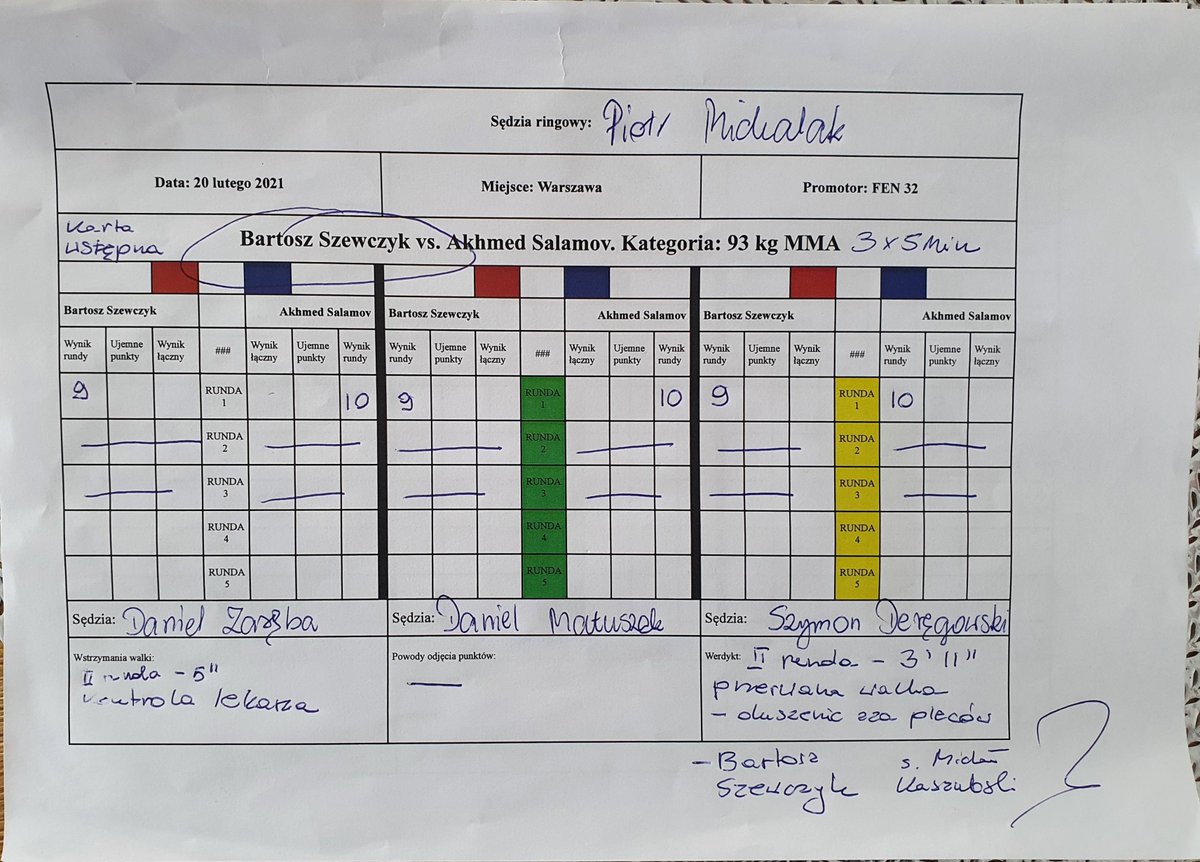 Sędzia ringowy: Piotr Michalak
Data: 20 lutego 2021 Miejsce: Warszawa Promotor: FEN 32
Karta
wstępna
Bartosz Szewczyk vs. Akhmed Salamov. Kategoria: 93 kg MMA 3x5 Min
Bartosz Szewczyk Akhmed Salamov Bartosz Szewczyk Akhmed Salamov Bartosz Szewczyk Akhmed Salamov
Wynik rundy Ujemne punkty Wynik łączny ### Wynik łączny Ujemne punkty Wynik rundy Wynik rundy Ujemne punkty Wynik łączny ### Wynik łączny Ujemne punkty Wynik rundy Wynik rundy Ujemne punkty Wynik łączny ### Wynik rundy Ujemne punkty Wynik łączny
9 RUNDA 1 10 9 RUNDA 1 10 9 RUNDA 1 10
RUNDA 2 RUNDA 2 RUNDA 2
RUNDA 3 RUNDA 3 RUNDA 3
RUNDA 4 RUNDA 4 RUNDA 4
RUNDA 5 RUNDA 5 RUNDA 5
Sędzia: Daniel Zaręba Sędzia: Daniel Matuszek Sędzia: Szymon Deręgowski
Wstrzymania walki:
II runda - 5"
kontrola lekarza
Powody odjęcia punktów:
Werdykt: II runda - 3' 11"
przerwana walka
- duszenie zza pleców
- Bartosz
Szewczyk
s. Michał
Kaszubski
2